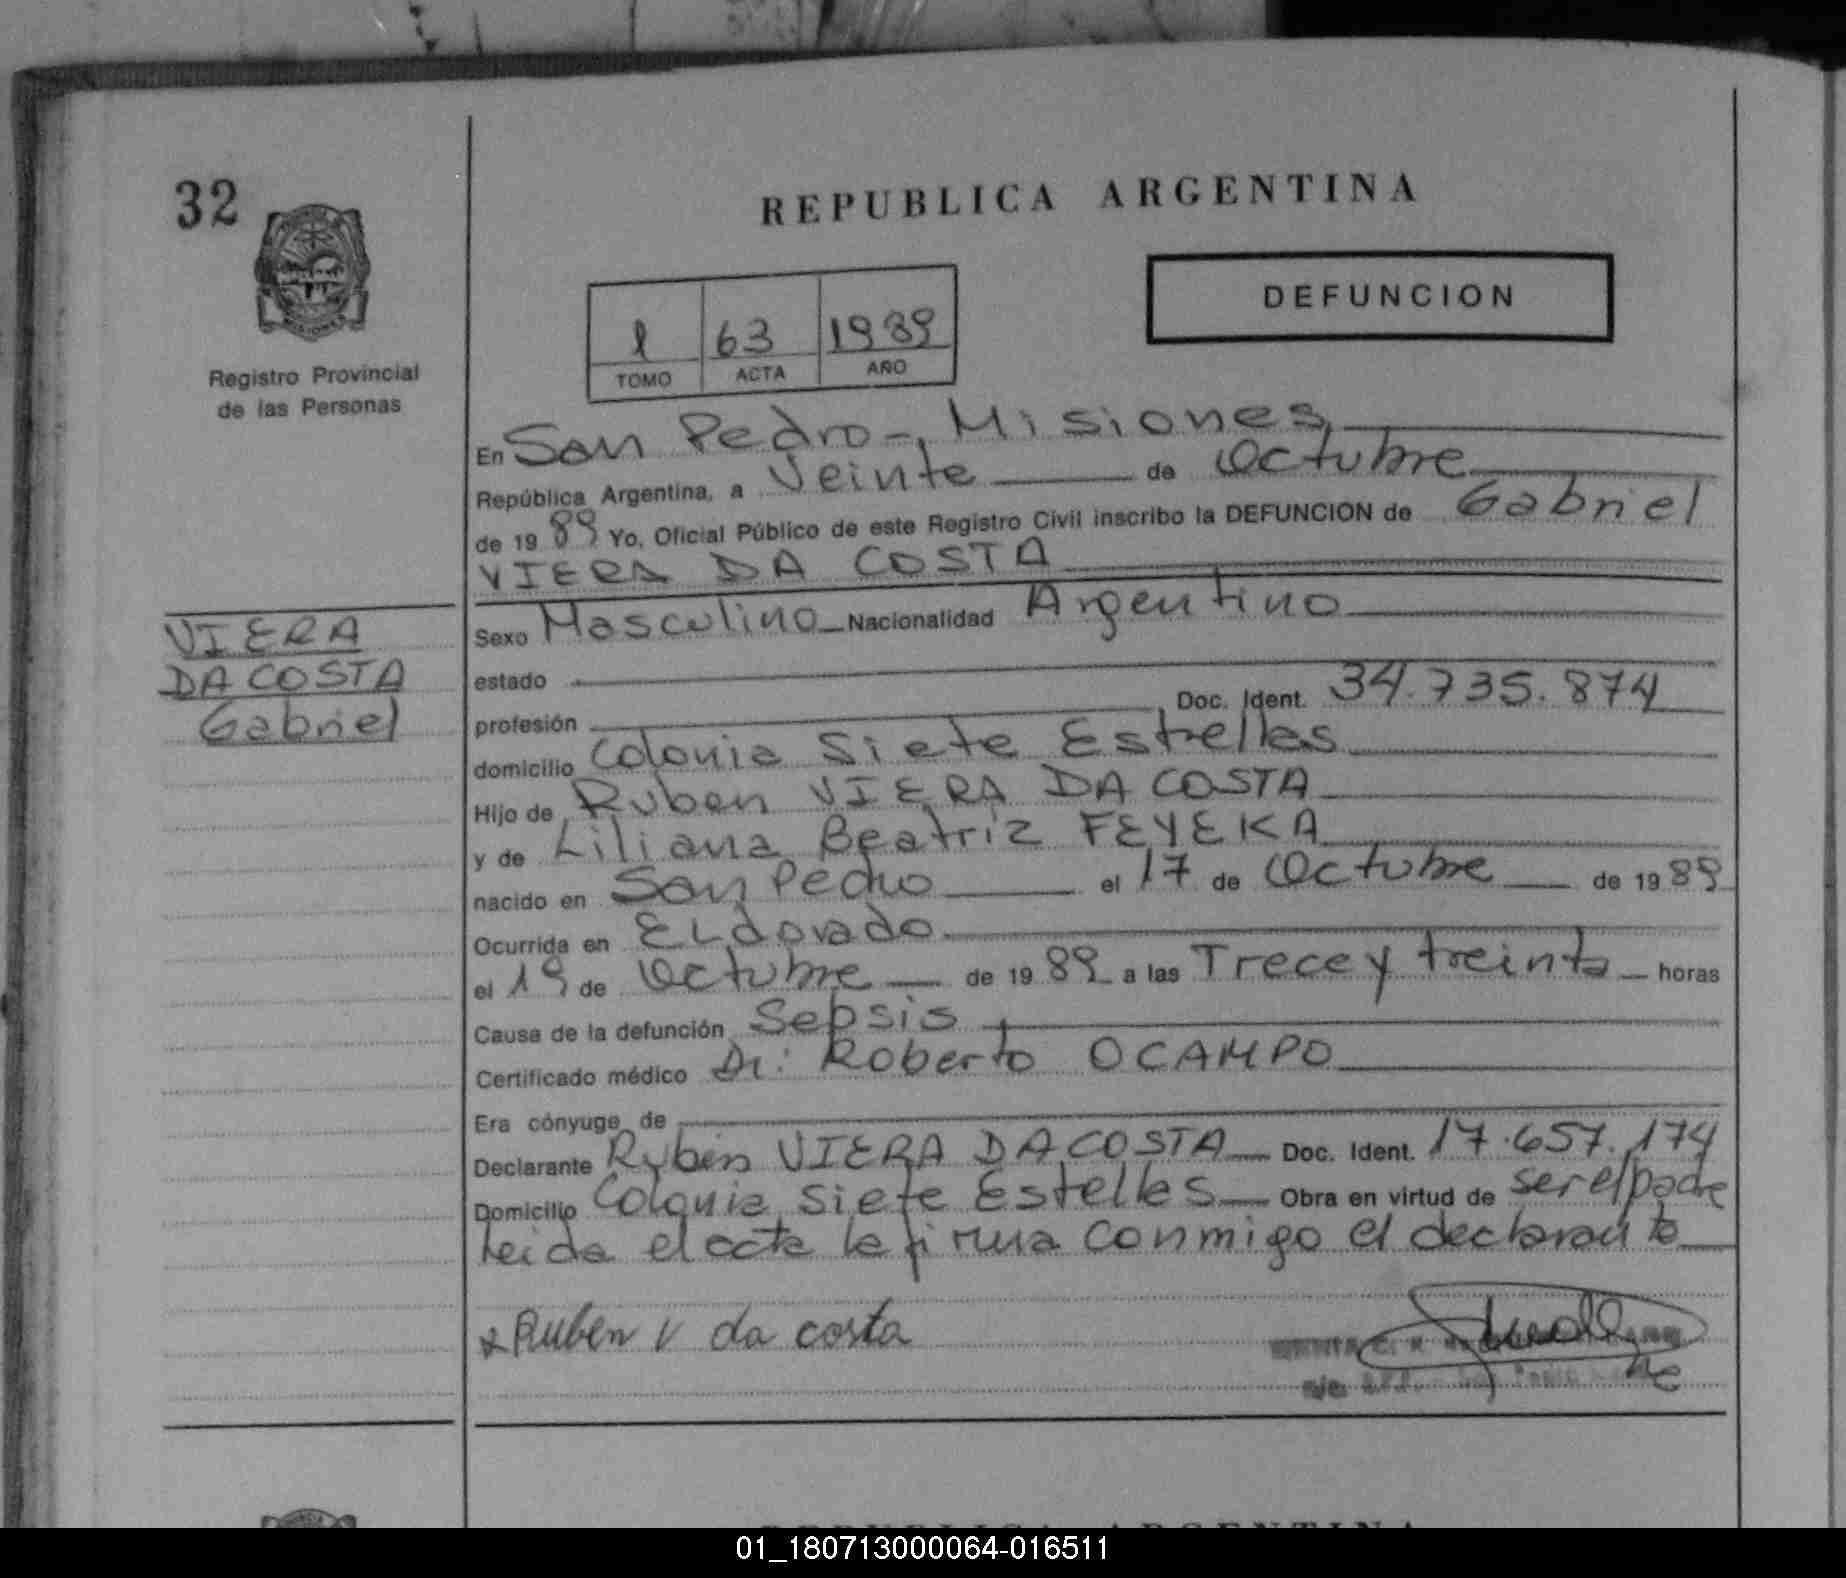 32
REPUBLICA ARGENTINA
DEFUNCION
1 63 1989
TOMO ACTA AÑO
Registro Provincial
de las Personas
En San Pedro-, Misiones
República Argentina, a Veinte de Octubre
de 1989 Yo, Oficial Público de este Registro Civil inscribo la DEFUNCION de Gabriel
VIERA DA COSTA
VIERA
DA COSTA
Gabriel
Sexo Masculino Nacionalidad Argentino
estado
profesión Doc. Ident. 34.735.874
domicilio Colonia Siete Estrellas
Hijo de Ruben VIERA DA COSTA
y de Liliana Beatriz FEYEKA
nacido en San Pedro el 17 de Octubre de 1989
Ocurrida en ELdorado
el 19 de Octubre de 1989 a las Trece y treinta horas
Causa de la defunción Sepsis
Certificado médico Dr: Roberto OCAMPO
Era cónyuge de
Declarante Ruben VIERA DA COSTA Doc. Ident. 17.657.174
Domicilio Colonia Siete Estelles Obra en virtud de ser el padre
leida el acta la firma conmigo el declarante
Ruben V da costa
REPUBLICA ARGENTINA
01_180713000064-016511